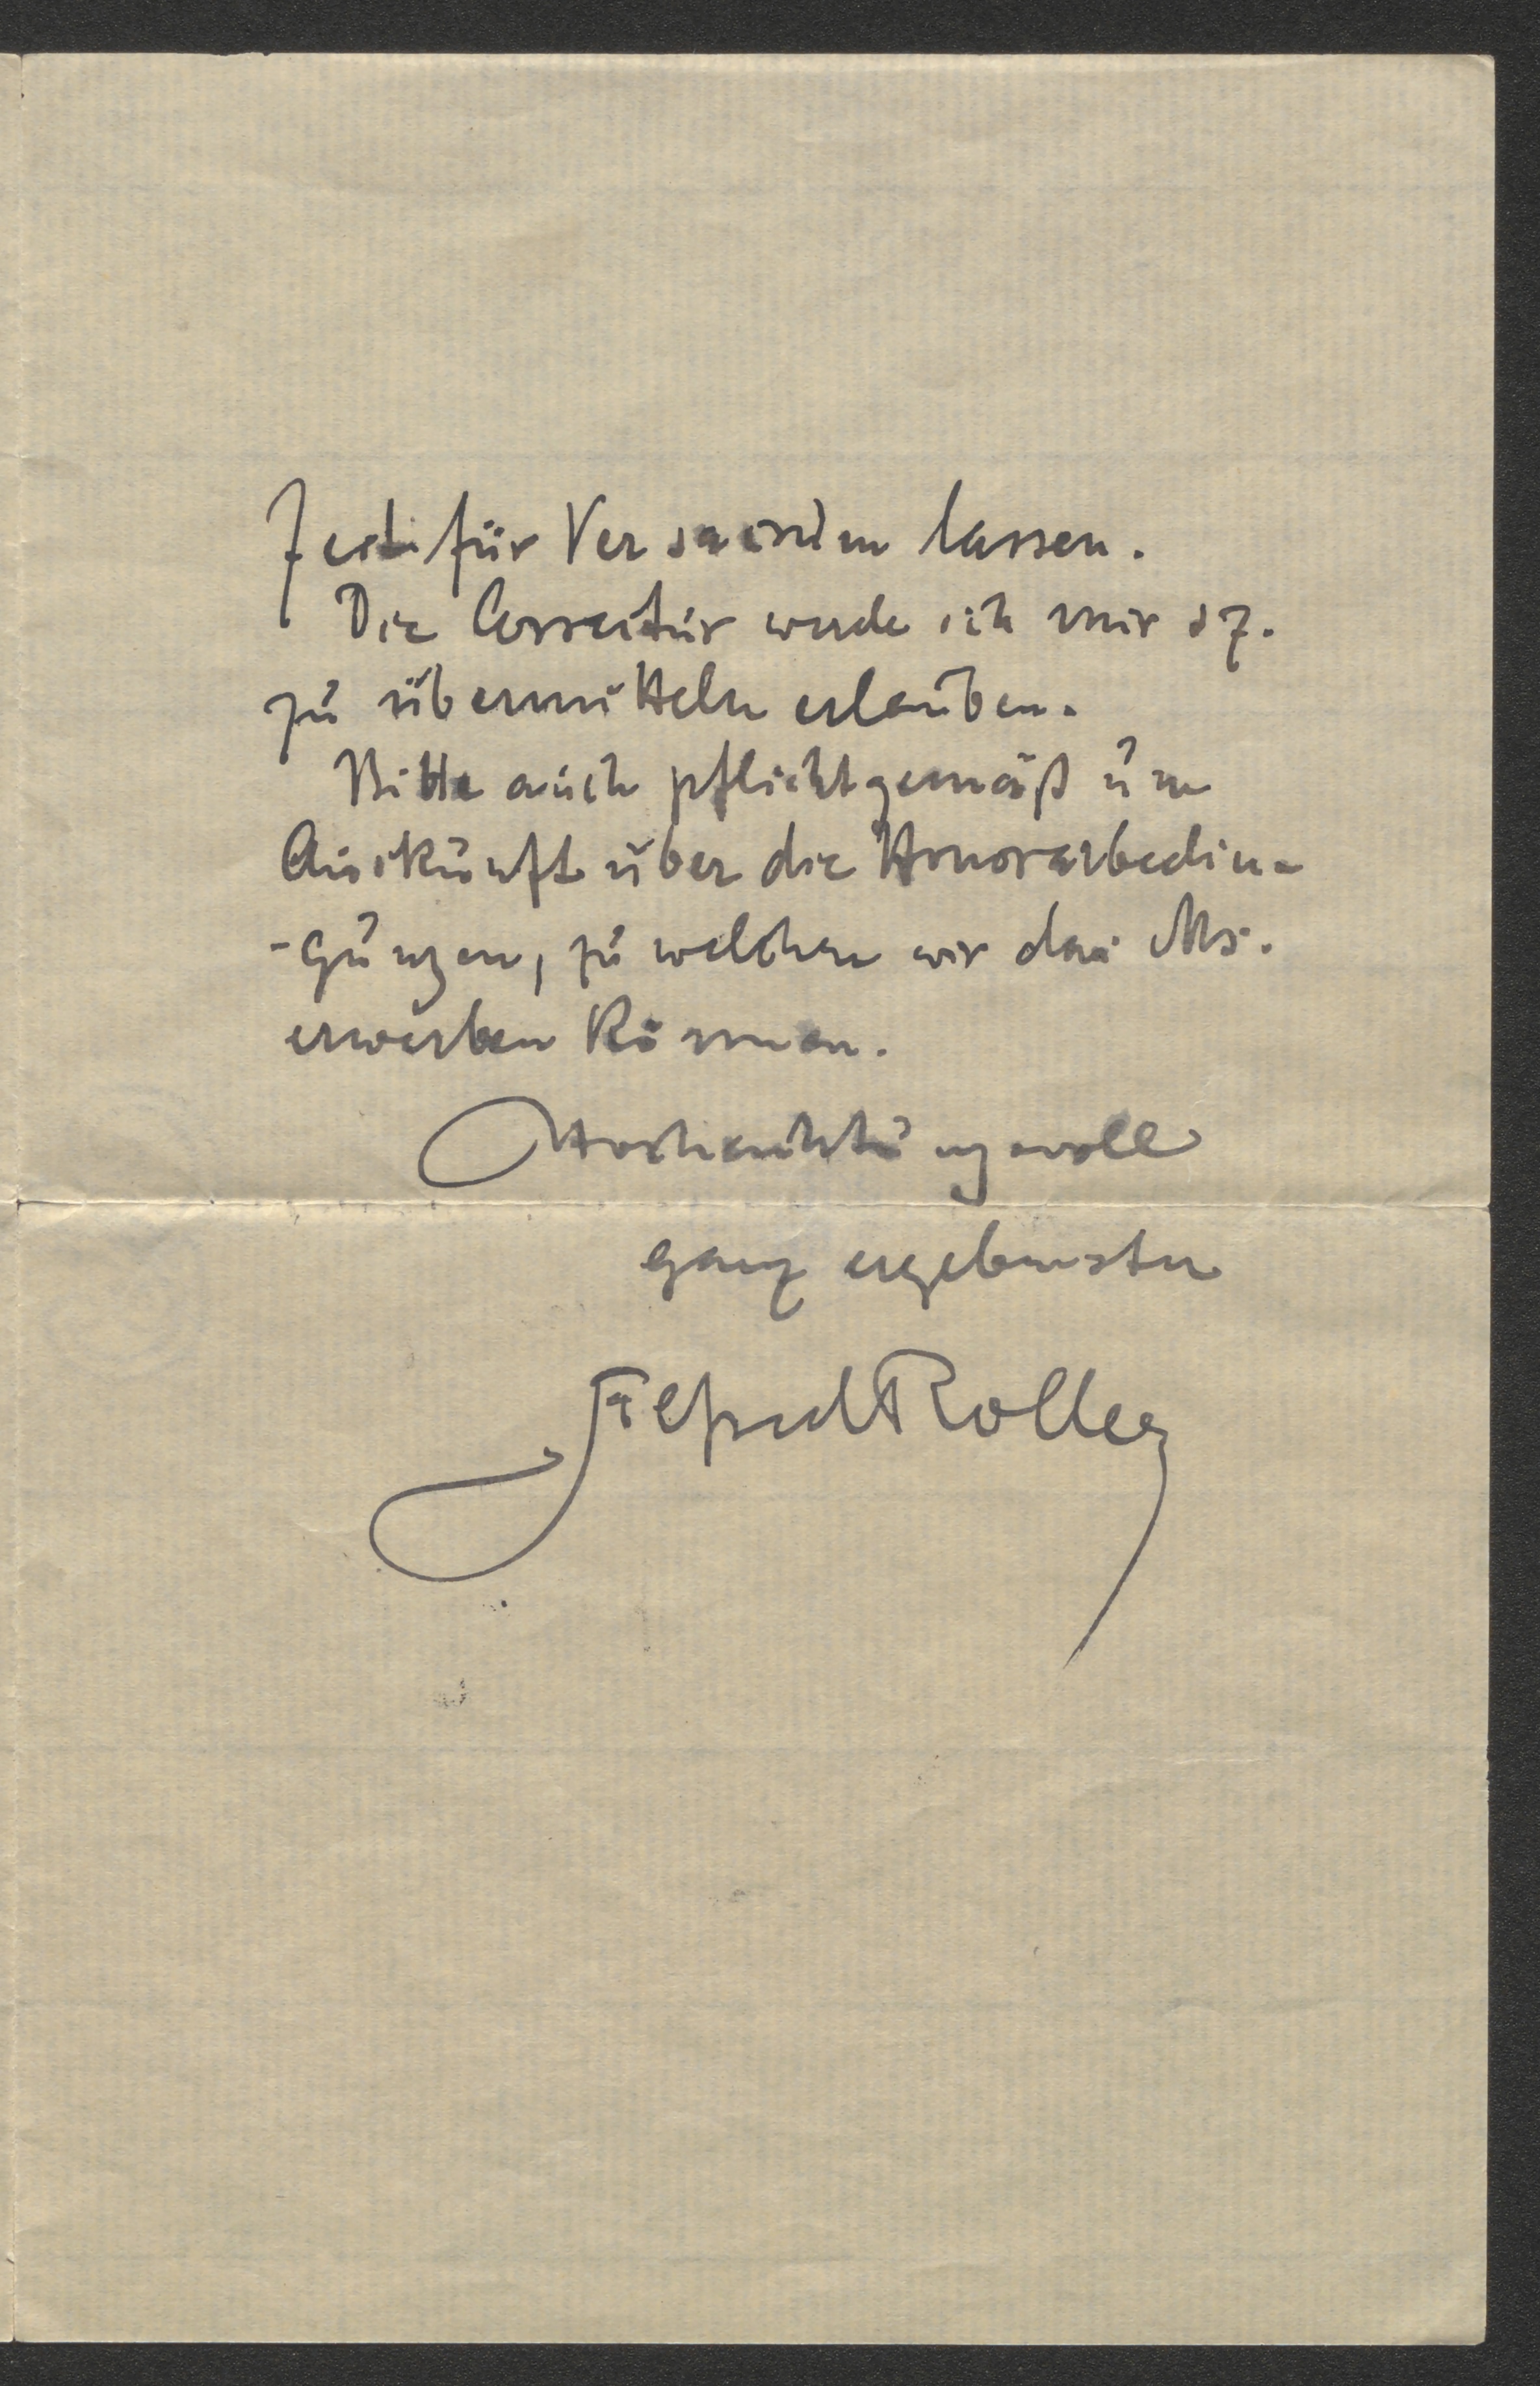 Zeit für Ver sacrum lassen.
Die Correctur werde ich mir sz.
zu übermitteln erlauben.
Bitte auch pflichtgemäß um
Auskunft über die Honorarbedin-
-gungen, zu welchen wir das Ms.
erwerben können.
Hochachtungsvoll
ganz ergebenster
Alfred Roller